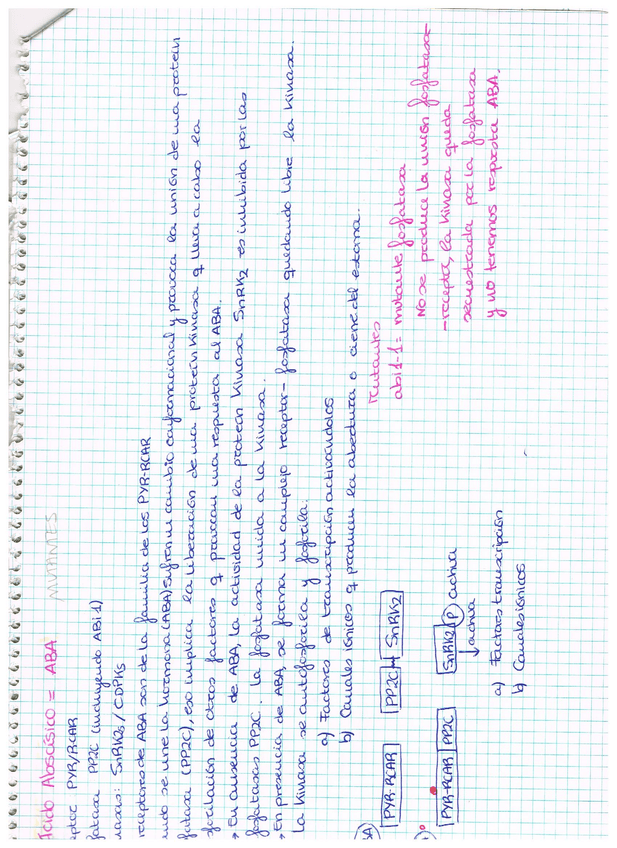 Ácido Abscísico = ABA MUTANTES
eptor PYR/RCAR
fatasa PP2C (incluyendo ABi1)
nasas: SnRK2s / CDPKs
receptores de ABA son de la familia de los PYR-RCAR
ando se une la hormona (ABA) sufren un cambio conformacional y provoca la unión de una protein
fatasa (PP2C), eso implica la liberación de una protein kinasa q lleva a cabo la
forilación de otros factores q provocan una respuesta al ABA.
→ En ausencia de ABA, la actividad de la protein kinasa SnRK2 es inhibida por las
fosfatasas PP2C. La fosfatasa unida a la kinasa.
→ En presencia de ABA, se forma un complejo receptor-fosfatasa quedando libre la kinasa.
La kinasa se autofosforila y fosforila.
a) Factores de transcripción activándolos
b) Canales iónicos q producen la abertura o cierre del estoma.
Mutantes
abi1-1 = mutante fosfatasa
No se produce la unión fosfatasa-
-receptor, la kinasa queda
secuestrada por la fosfatasa
y no tenemos respuesta ABA.
BA) PYR-RCAR PP2C SnRK2
PYR-RCAR PP2C SnRK2 P activa
activa
a) Factores transcripción
b) Canales iónicos